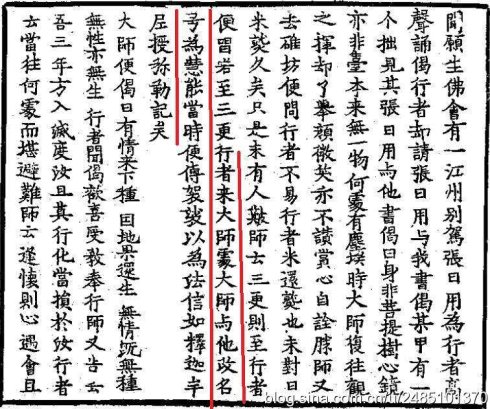 聞願生佛會有一江州別駕張日用為行者高
聲誦偈行者却請張日用与我書偈某甲有一
个拙見其張日用与他書偈曰身非菩提樹心鏡
亦非臺本来無一物何處有塵埃時大師復往觀
之揮却了舉頭微笑亦不讃賞心自詮勝師又
去碓坊便問行者不易行者米還熟也未對曰
米熟久矣只是未有人簸師云三更則至行者
便唱若至三更行者来大師處大師与他改名
号為慧能當時便傳袈裟以為法信如釋迦牟
尼授弥勒記矣
大師便偈曰有情来下種 因地果還生 無情旣無種
無性亦無生 行者聞偈歡喜受教奉行師又告云
吾三年方入滅度汝且莫行化當損於汝行者
云當往何處而堪避難師云逢懷則止遇會且
blog.sina.com.cn/2485101370